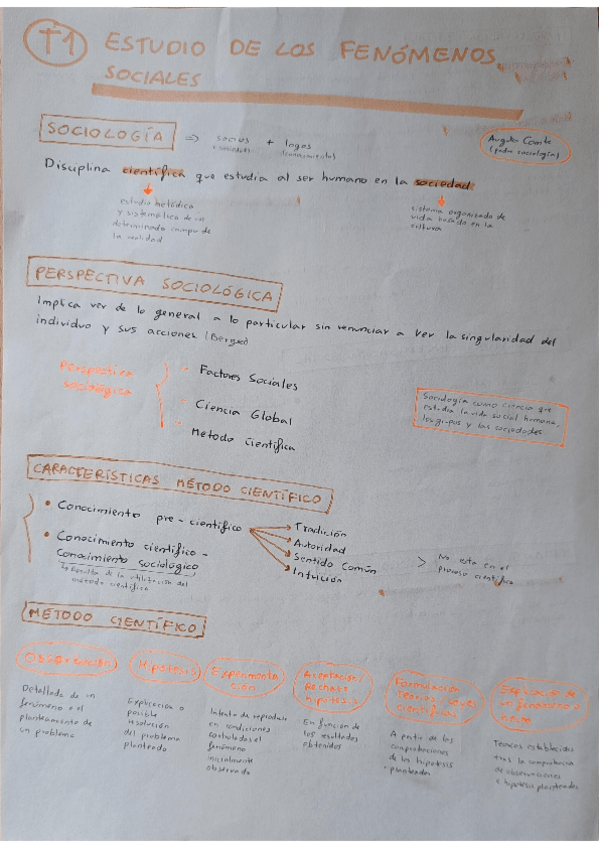 T1 ESTUDIO DE LOS FENÓMENOS
SOCIALES
SOCIOLOGÍA => socius + logos
(conocimiento)
Augusto Comte
(padre sociología)
Disciplina científica que estudia al ser humano en la sociedad.
estudio metódico
y sistemático de un
determinado campo de
la realidad
sistema organizado de
vida basado en la
cultura
PERSPECTIVA SOCIOLÓGICA
Implica vir de lo general a lo particular sin renunciar a ver la singularidad del
individuo y sus acciones (Berger)
Perspectiva
sociológica
- Factores Sociales
- Ciencia Global
- Metodo Científica
Sociología como ciencia que
estudia la vida social humana,
los grupos y las sociedades
CARACTERÍSTICAS MÉTODO CIENTÍFICO
• Conocimiento pre-científico
Tradición
Autoridad
Sentido Común
Intuición
> No esta en el
proceso científico
• Conocimiento científico -
Conocimiento sociológico
de la utilización del
método científico
MÉTODO CIENTÍFICO
Observación
Detallada de un
fenómeno o el
planteamiento de
un problema
Hipótesis
Explicación o
posible
resolución
del problema
planteado
Experimenta
ción
Intento de reproducir
en condiciones
controladas el
fenómeno
inicialmente
observado
Aceptación/
Rechazo
hipótesis
En función de
los resultados
obtenidos
Formulación
Teorías/Leyes
científicas
A partir de las
comprobaciones
de las hipótesis
planteadas
Explicación de
un fenómeno o
Teorías establecidas
tras la comprobación
de observaciones
e hipótesis planteadas